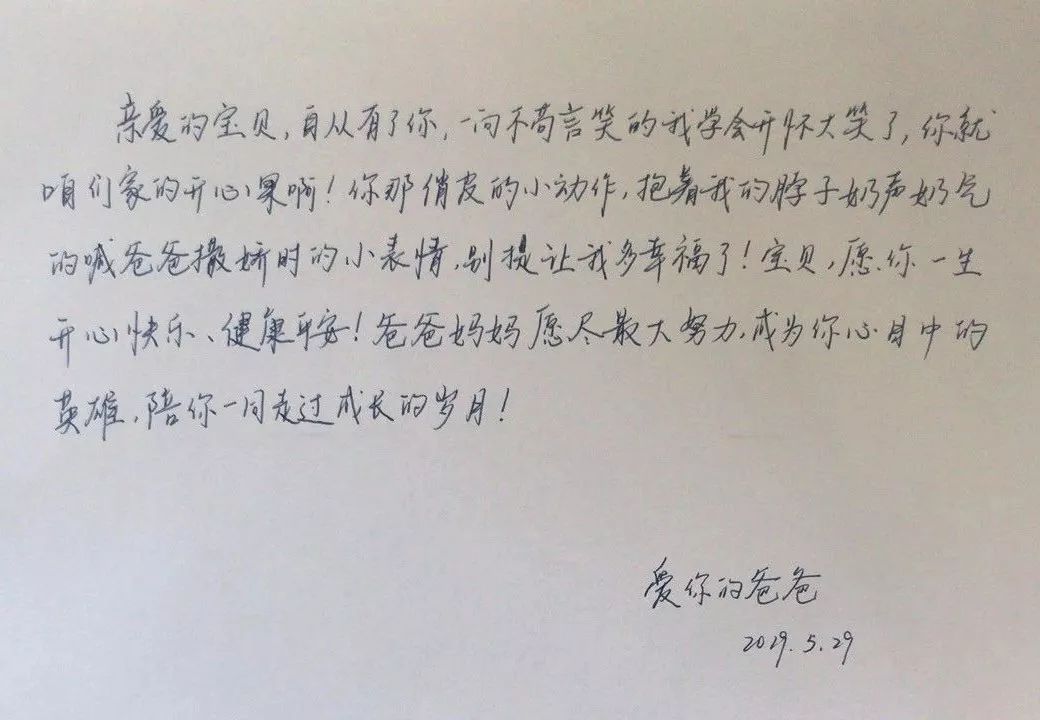 亲爱的宝贝，自从有了你，一向不苟言笑的我学会开怀大笑了，你就
咱们家的开心果啊！你那俏皮的小动作，抱着我的脖子奶声奶气
的喊爸爸撒娇时的小表情，别提让我多幸福了！宝贝，愿你一生
开心快乐、健康平安！爸爸妈妈愿尽最大努力，成为你心目中的
英雄，陪你一同走过成长的岁月！
爱你的爸爸
2029.5.29